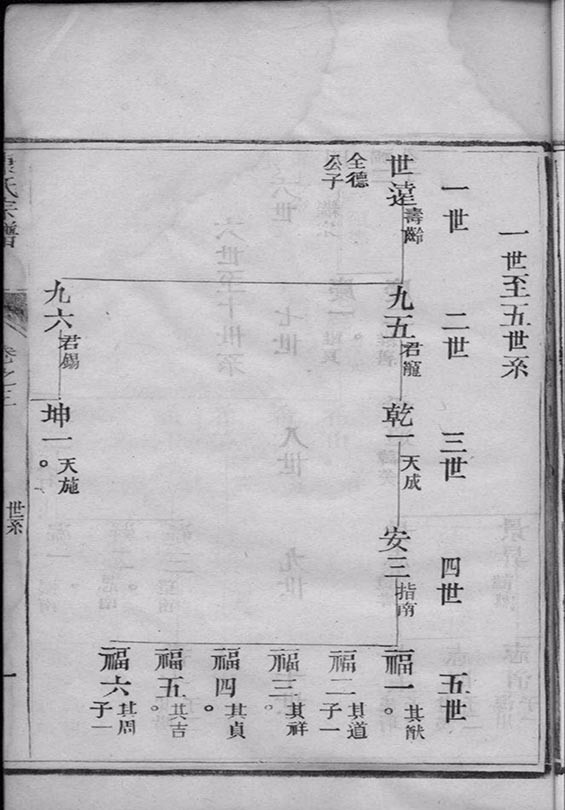 一世至五世系
一世
二世
三世
四世
五世
世遠 壽齡
全德
公子
九五 君寵
乾一 天成
安三 指南
福一 其猷。
福二 其道
子一
福三 其祥。
福四 其貞。
福五 其吉。
福六 其周
子一
九六 君錫
坤一 天施。
氏宗譜
卷之三
世系
一